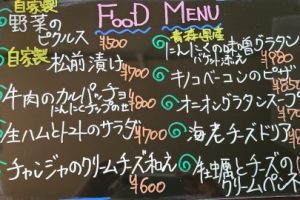 FOOD MENU
自家製
野菜の
ピクルス
¥500
自家製
松前漬け
¥700
牛肉のカルパッチョ
にんにくチップのせ
¥800
生ハムとトマトのサラダ
¥700
チャンジャのクリームチーズ和え
¥600
青森県産
にんにくの味噌グラタン
バケット添え
¥980
キノコベーコンのピザ
オニオングラタンスープ
海老チーズドリア
牡蠣とチーズの
クリームペンネ